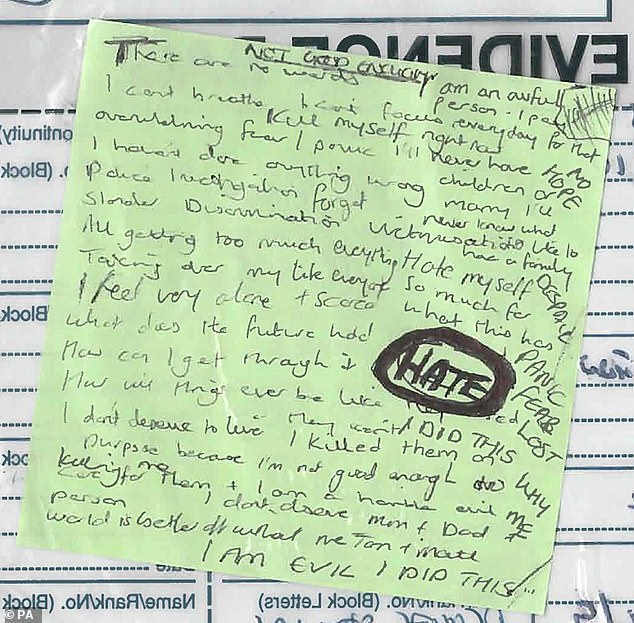 EVIDENCE
NOT GOOD ENOUGH
There are no words
I am an awful person - I pay everyday for that
I can't breathe I can't focus
Kill myself right now
overwhelming fear / panic
I'll never have children or marry I'll never know what it's like to have a family
NO HOPE
I haven't done anything wrong
Police investigation forget
Slander Discrimination Victimisation
All getting too much everything
Hate myself so much for what this has
DESPAIR
Taking over my life everyone
I feel very alone + scared
What does the future hold
PANIC
How can I get through it
HATE
FEAR
How will things ever be like they
LOST
I DID THIS
I don't deserve to live
I killed them on
WHY ME
purpose because I'm not good enough to
care for them + I am a horrible evil
person
I don't deserve mum + Dad
world is better off without me
I AM EVIL I DID THIS
continuity)
(Block
(Block
(Block
Name/Rank/No. (Block
No. (Block Letters)
© PA